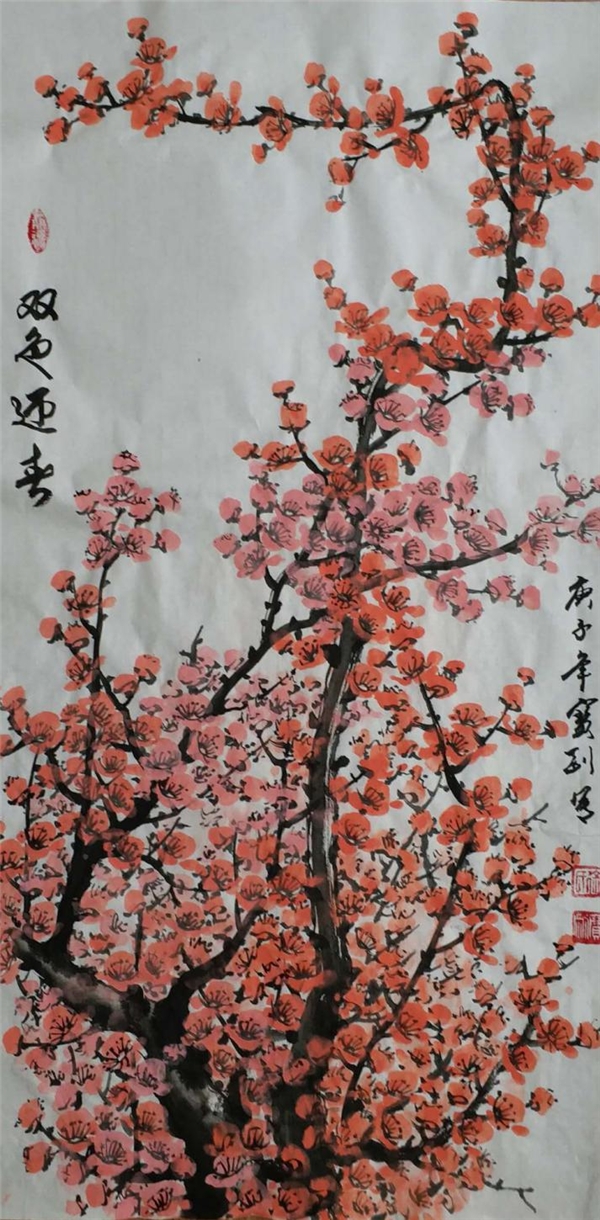 双色迎春
庚子年宝利写